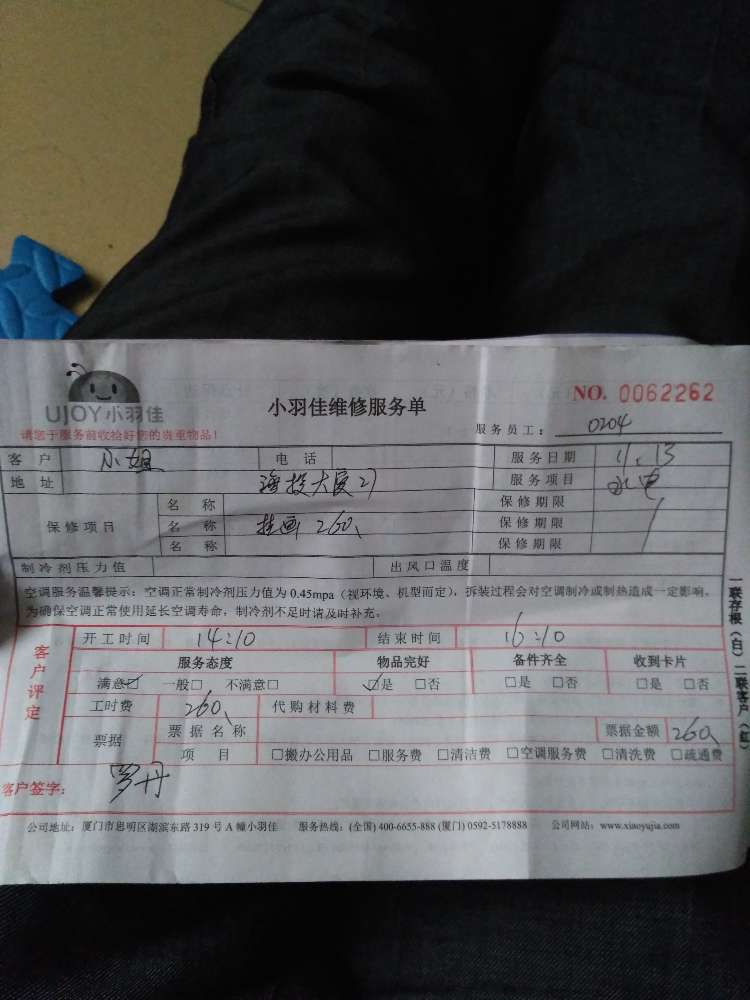 UJOY小羽佳
小羽佳维修服务单
NO. 0062262
请您于服务前收拾好您的贵重物品！
服务员工： 0204
客户 小姐 电话 服务日期 11.13
地址 海投大厦27 服务项目 水电
保修项目 名称 保修期限
名称 挂画260、 保修期限
名称 保修期限
制冷剂压力值 出风口温度
空调服务温馨提示：空调正常制冷剂压力值为 0.45mpa（视环境、机型而定），拆装过程会对空调制冷或制热造成一定影响，
为确保空调正常使用延长空调寿命，制冷剂不足时请及时补充。
一联存根（白）二联客户（红）
客户评定
开工时间 14:10 结束时间 16:10
服务态度 物品完好 备件齐全 收到卡片
满意☑ 一般□ 不满意□ ☑是 □否 □是 □否 □是 □否
工时费 260、 代购材料费
票据 票据名称 票据金额 260、
项目 □搬办公用品 □服务费 □清洁费 □空调服务费 □清洗费 □疏通费
客户签字： 罗丹
公司地址：厦门市思明区湖滨东路 319 号 A 幢小羽佳 服务热线：(全国) 400-6655-888 (厦门) 0592-5178888 公司网站：www.xiaoyujia.com